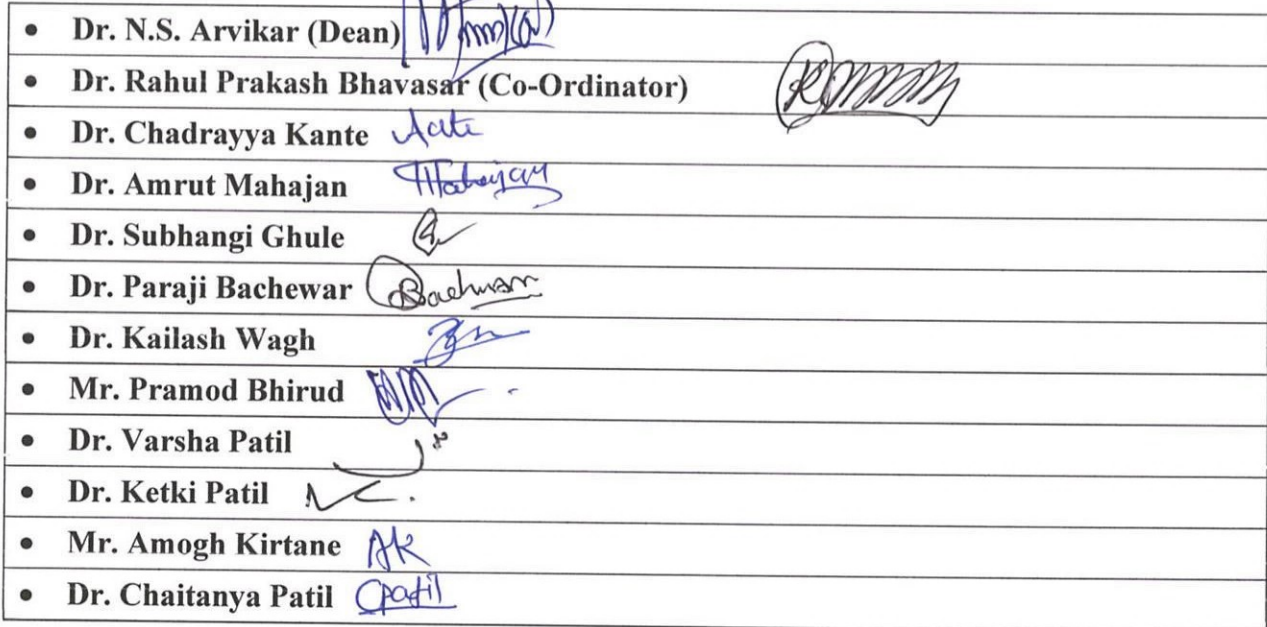 • Dr. N.S. Arvikar (Dean)
• Dr. Rahul Prakash Bhavasar (Co-Ordinator)
• Dr. Chadrayya Kante
• Dr. Amrut Mahajan Mahajan
• Dr. Subhangi Ghule
• Dr. Paraji Bachewar
• Dr. Kailash Wagh
• Mr. Pramod Bhirud
• Dr. Varsha Patil
• Dr. Ketki Patil
• Mr. Amogh Kirtane AK
• Dr. Chaitanya Patil Cpatil